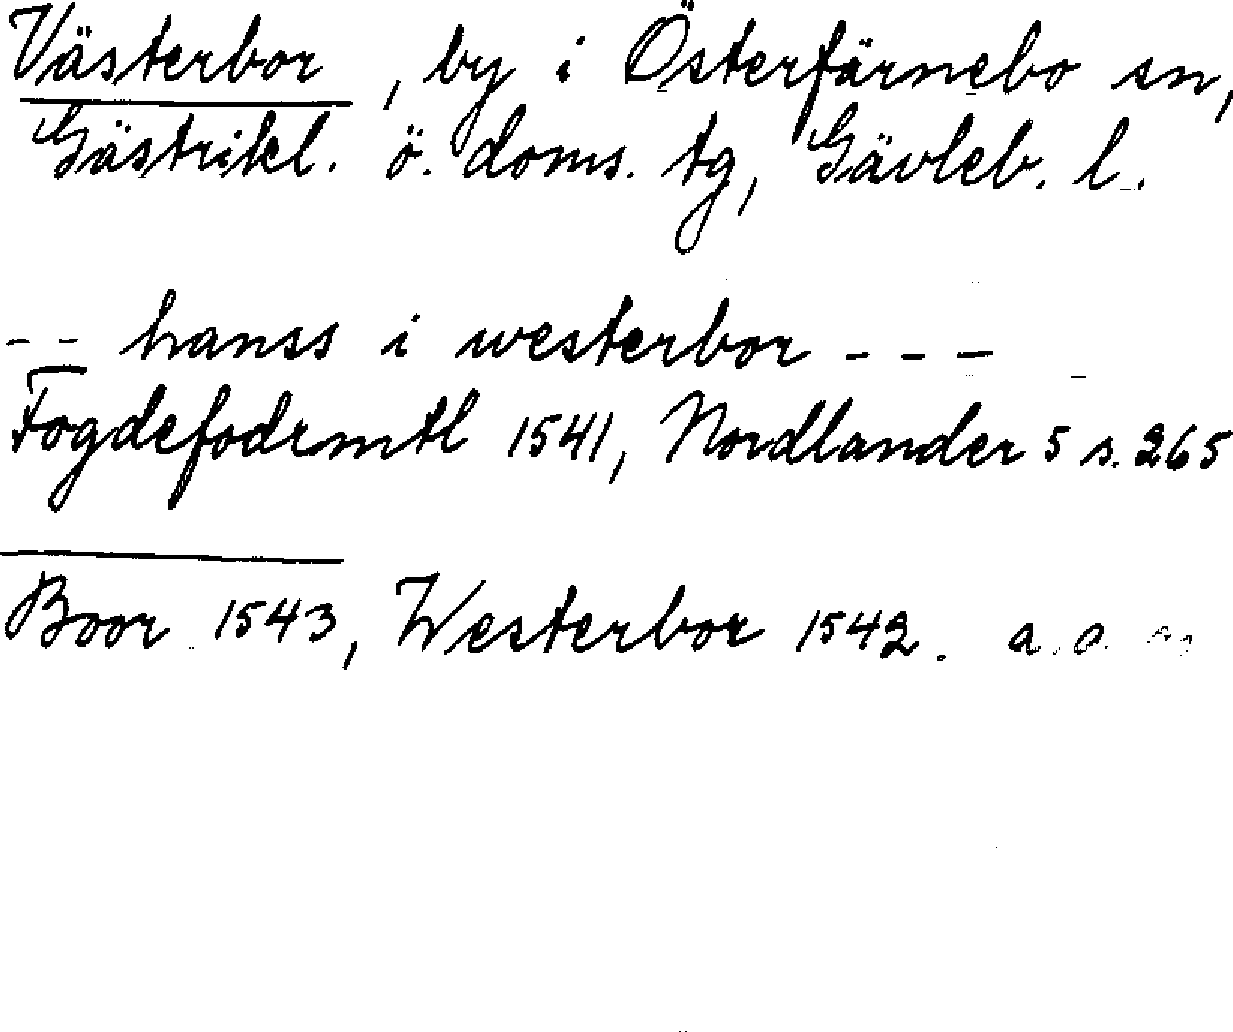 Västerbor, by i Österfärnebo sn,
Gästrikl. ö. doms. tg, Gävleb. l.
-- hanss i westerbor ---
Fogdefodrmtl 1541, Nordlander 5 s. 265
Boor 1543, Westerbor 1542. a. a.